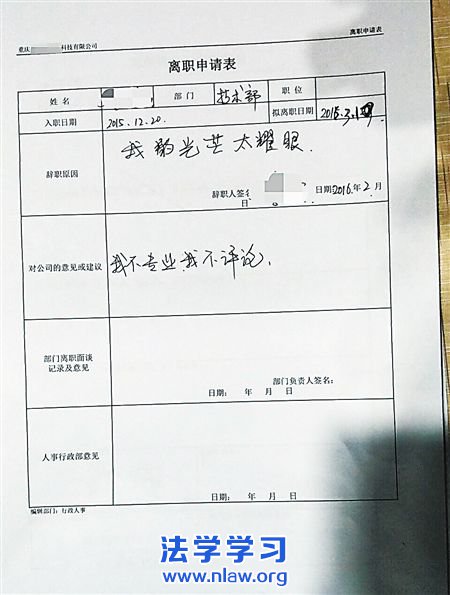 重庆 科技有限公司 离职申请表
离职申请表
姓名 部门 技术部 职位
入职日期 2015.12.20. 拟离职日期 2015.3.1
辞职原因 我的光芒太耀眼.
辞职人签名 日期:2016年2月
日
对公司的意见或建议 我不专业,我不评论.
部门离职面谈
记录及意见
部门负责人签名:
日期: 年 月 日
人事行政部意见
日期: 年 月 日
编制部门:行政人事
法学学习
www.nlaw.org